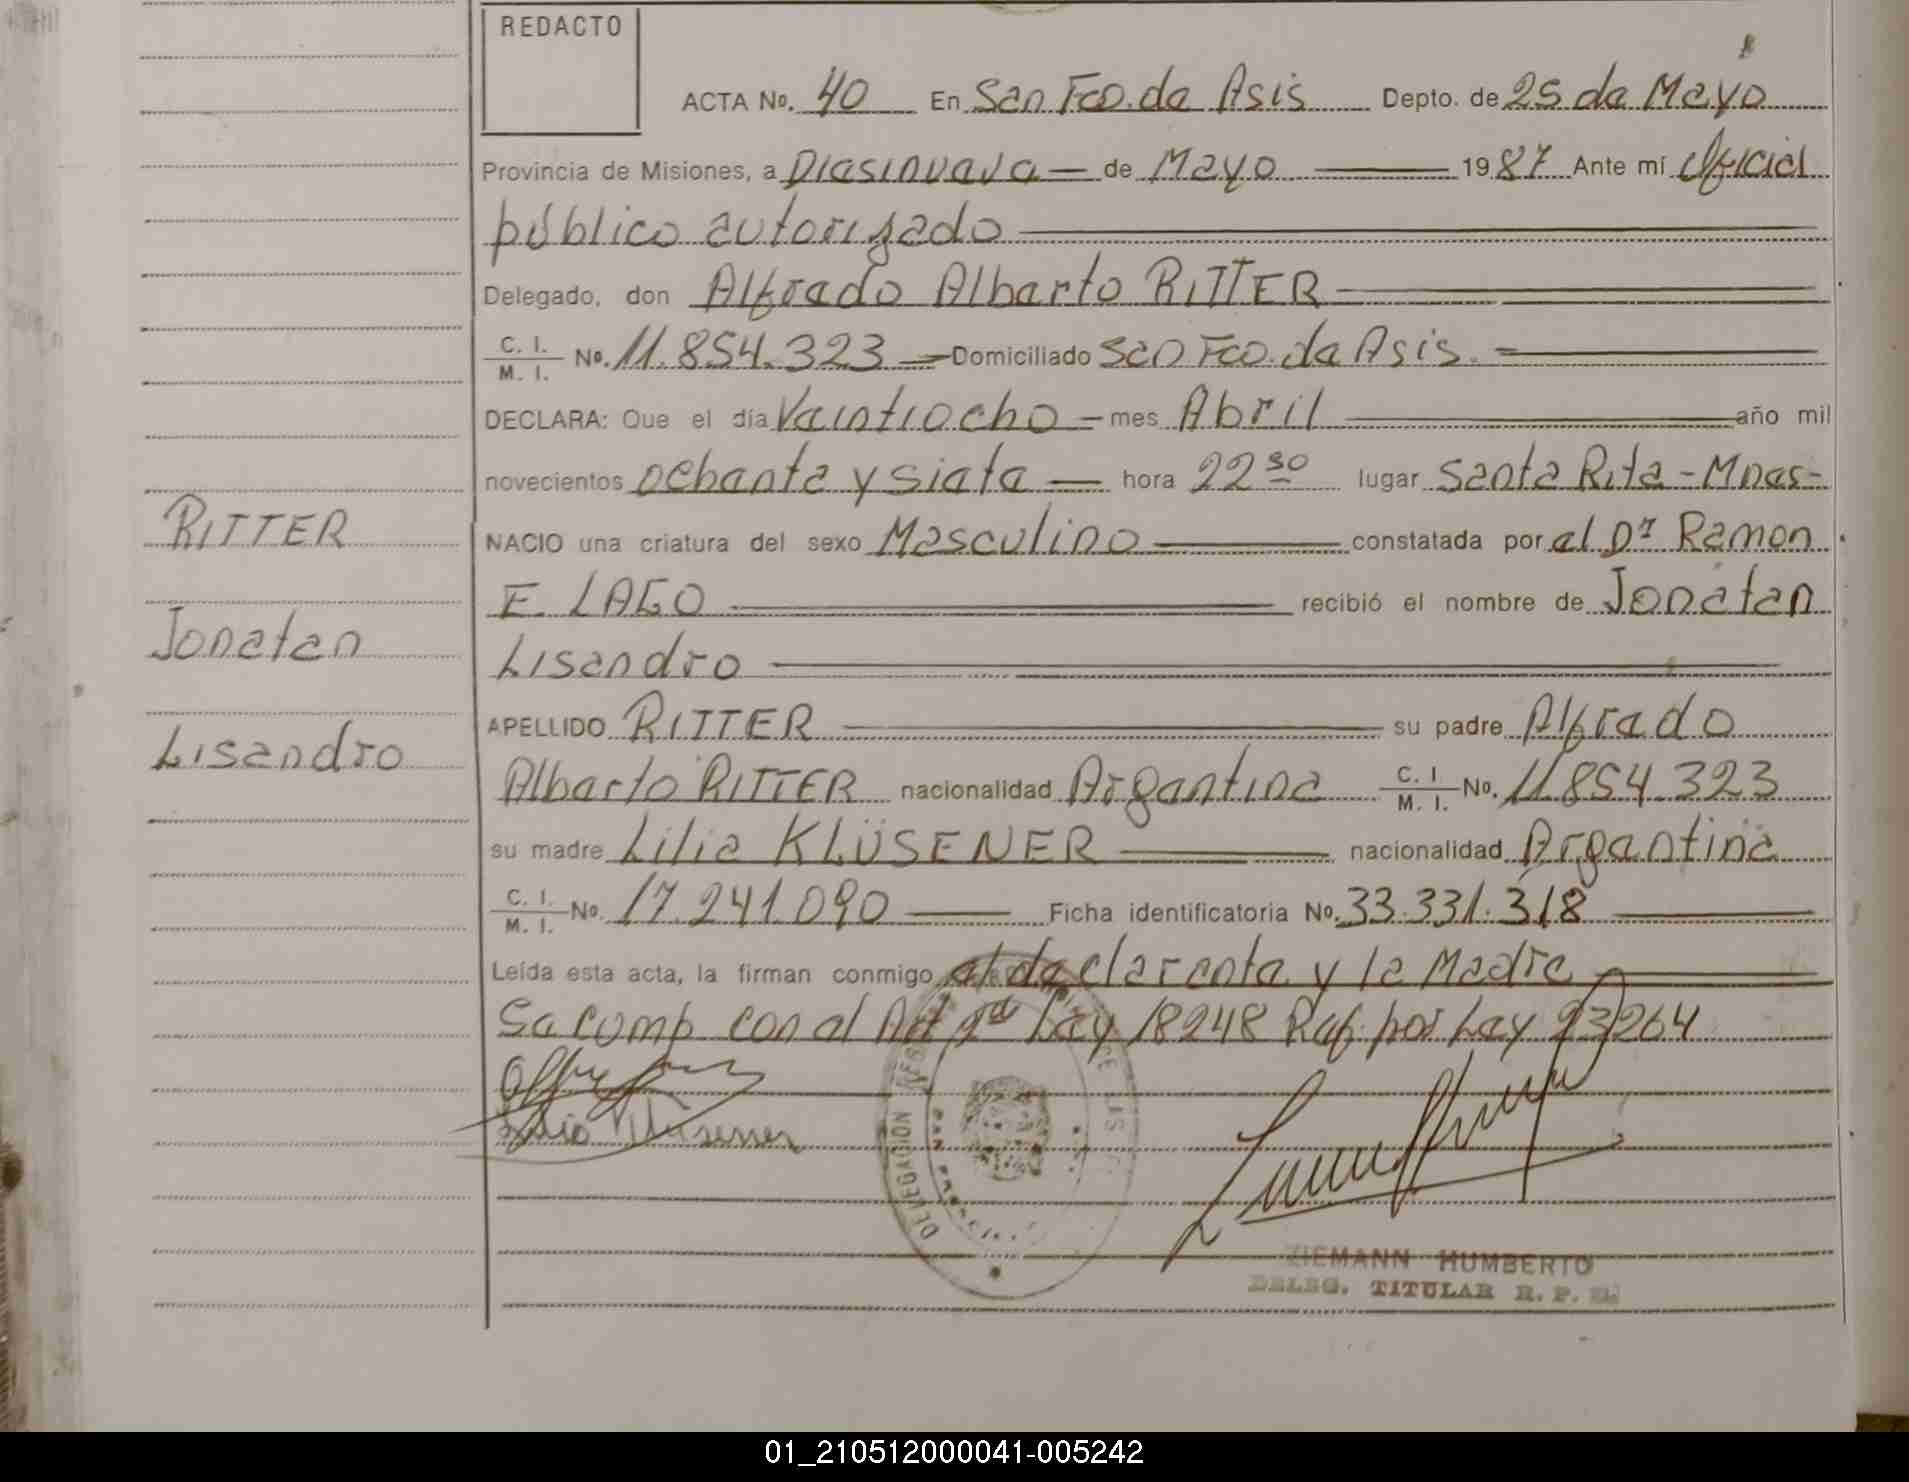 REDACTO
ACTA No. 40 En San Fco. de Asis Depto. de 25 de Mayo
Provincia de Misiones, a Diesinueve de Mayo 1987 Ante mí Oficial
público autorizado
Delegado, don Alfredo Alberto RITTER
C. I. / M. I. No. 11.854.323 Domiciliado San Fco. de Asis.
DECLARA: Que el día Veintiocho mes Abril año mil
novecientos ochenta y siete hora 22 30 lugar Santa Rita - Mnes-
NACIO una criatura del sexo Masculino constatada por el Dr Ramon
E. LAGO recibió el nombre de Jonatan
Lisandro
APELLIDO RITTER su padre Alfredo
Alberto RITTER nacionalidad Argentina C. I. / M. I. No. 11.854.323
su madre Lilia KLÜSENER nacionalidad Argentina
C. I. / M. I. No. 17.241.090 Ficha identificatoria No. 33.331.318
Leída esta acta, la firman conmigo el declarente y la Madre
Se comp con el Art 2do Ley 18248 Ref. por Ley 23264
Klüsener
DELEGACION
SAN FRANCISCO
ZIEMANN HUMBERTO
DELEG. TITULAR R. P.
RITTER
Jonatan
Lisandro
01_210512000041-005242